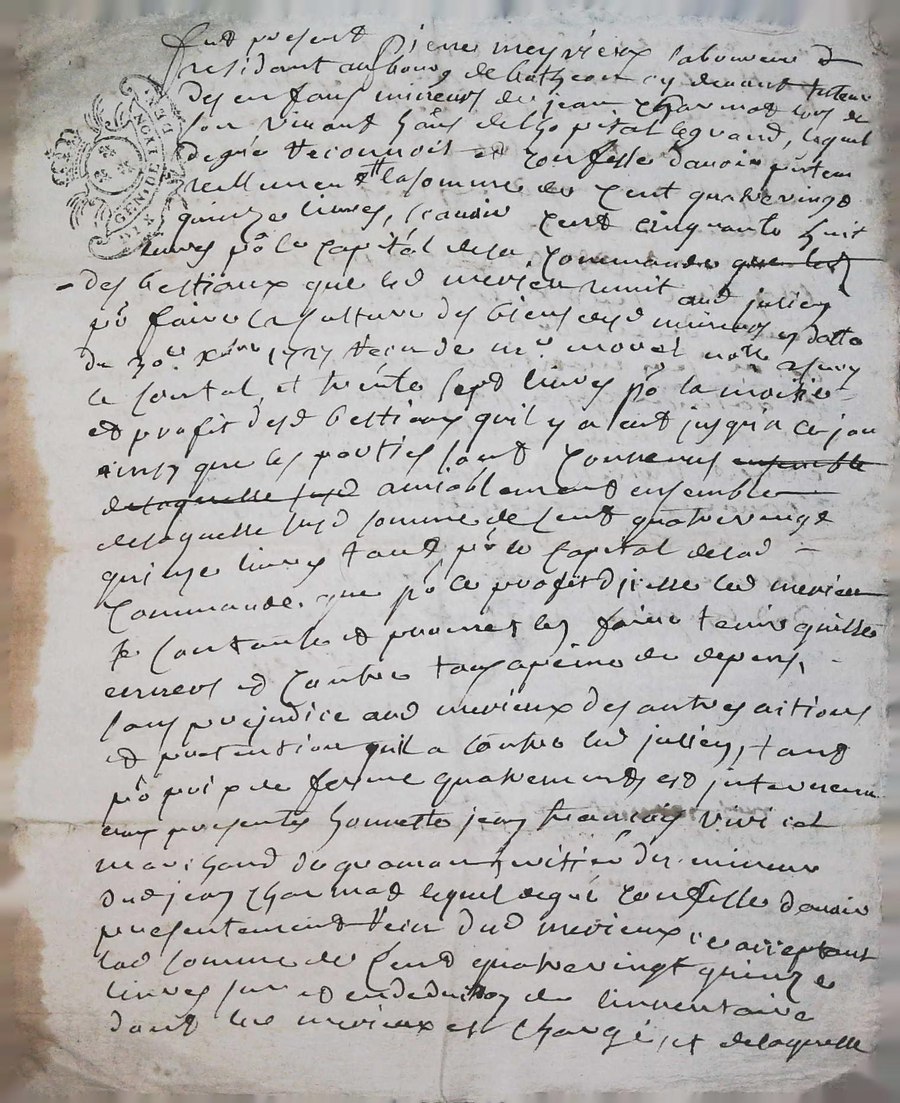 fut present pierre meyrieux laboureur
residant au bourg de cy devant tuteur
des enfans mineurs de jean charmad
son vivant hoste de lequel
de gré reconnoit et confesse d'avoir
reellement la somme de cent quatrevingt
quinze livres, scavoir cent cinquante huit
livres po le capital de la commande que led
des bestiaux que led merieu remit aud julien
po faire la culture des biens desd mineurs en datte
du 30e xbre 1727 recu de me morel nore
et trente sept livres po la moitié
et profit desd bestiaux qu'il y a eut jusqu'a ce jou
ainsy que les parties sont convenus ensemble
de laquelle susd amiablement ensemble
de laquelle susd somme de cent quatrevingt
quinze livres tant po le capital de lad
commande que po le profit d'icelle led merieu
se contante et promet les faire tenir quitte
envers et contre tous a peine de depens,
sans prejudice aud merieux des autres actions
et pretention qu'il a contre led julien, tant
po prix de ferme qu'autrement, est intervenu
aux presentes honnette jean francois vivict
marchand du des mineurs
dud jean charmad lequel de gré confesse d'avoir
presentement recu dud merieux ce acceptant
lad somme de cent quatrevingt quinze
livres sur et en deduction de l'inventaire
dont led merieux est chargé, et de laquelle
GEN. DE LYON
DIX DENI